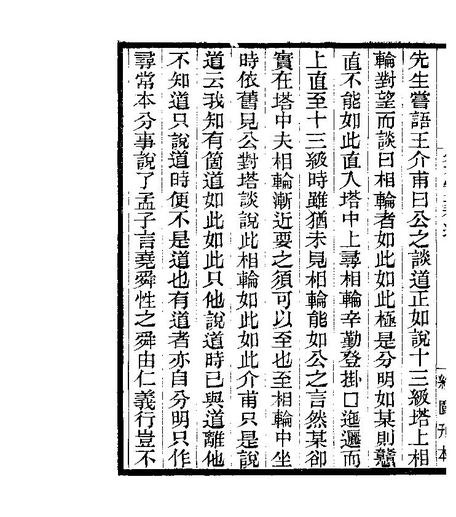 先生嘗語王介甫曰公之談道正如說十三級塔上相
輪對望而談曰相輪者如此如此極是分明如某則戇
直不能如此直入塔中上尋相輪辛勤登掛囗迤邐而
上直至十三級時雖猶未見相輪能如公之言然某卻
實在塔中去相輪漸近要之須可以至也至相輪中坐
時依舊見公對塔談說此相輪如此如此介甫只是說
道云我知有箇道如此如此只他說道時已與道離他
不知道只說道時便不是道也有道者亦自分明只作
尋常本分事說了孟子言堯舜性之舜由仁義行豈不